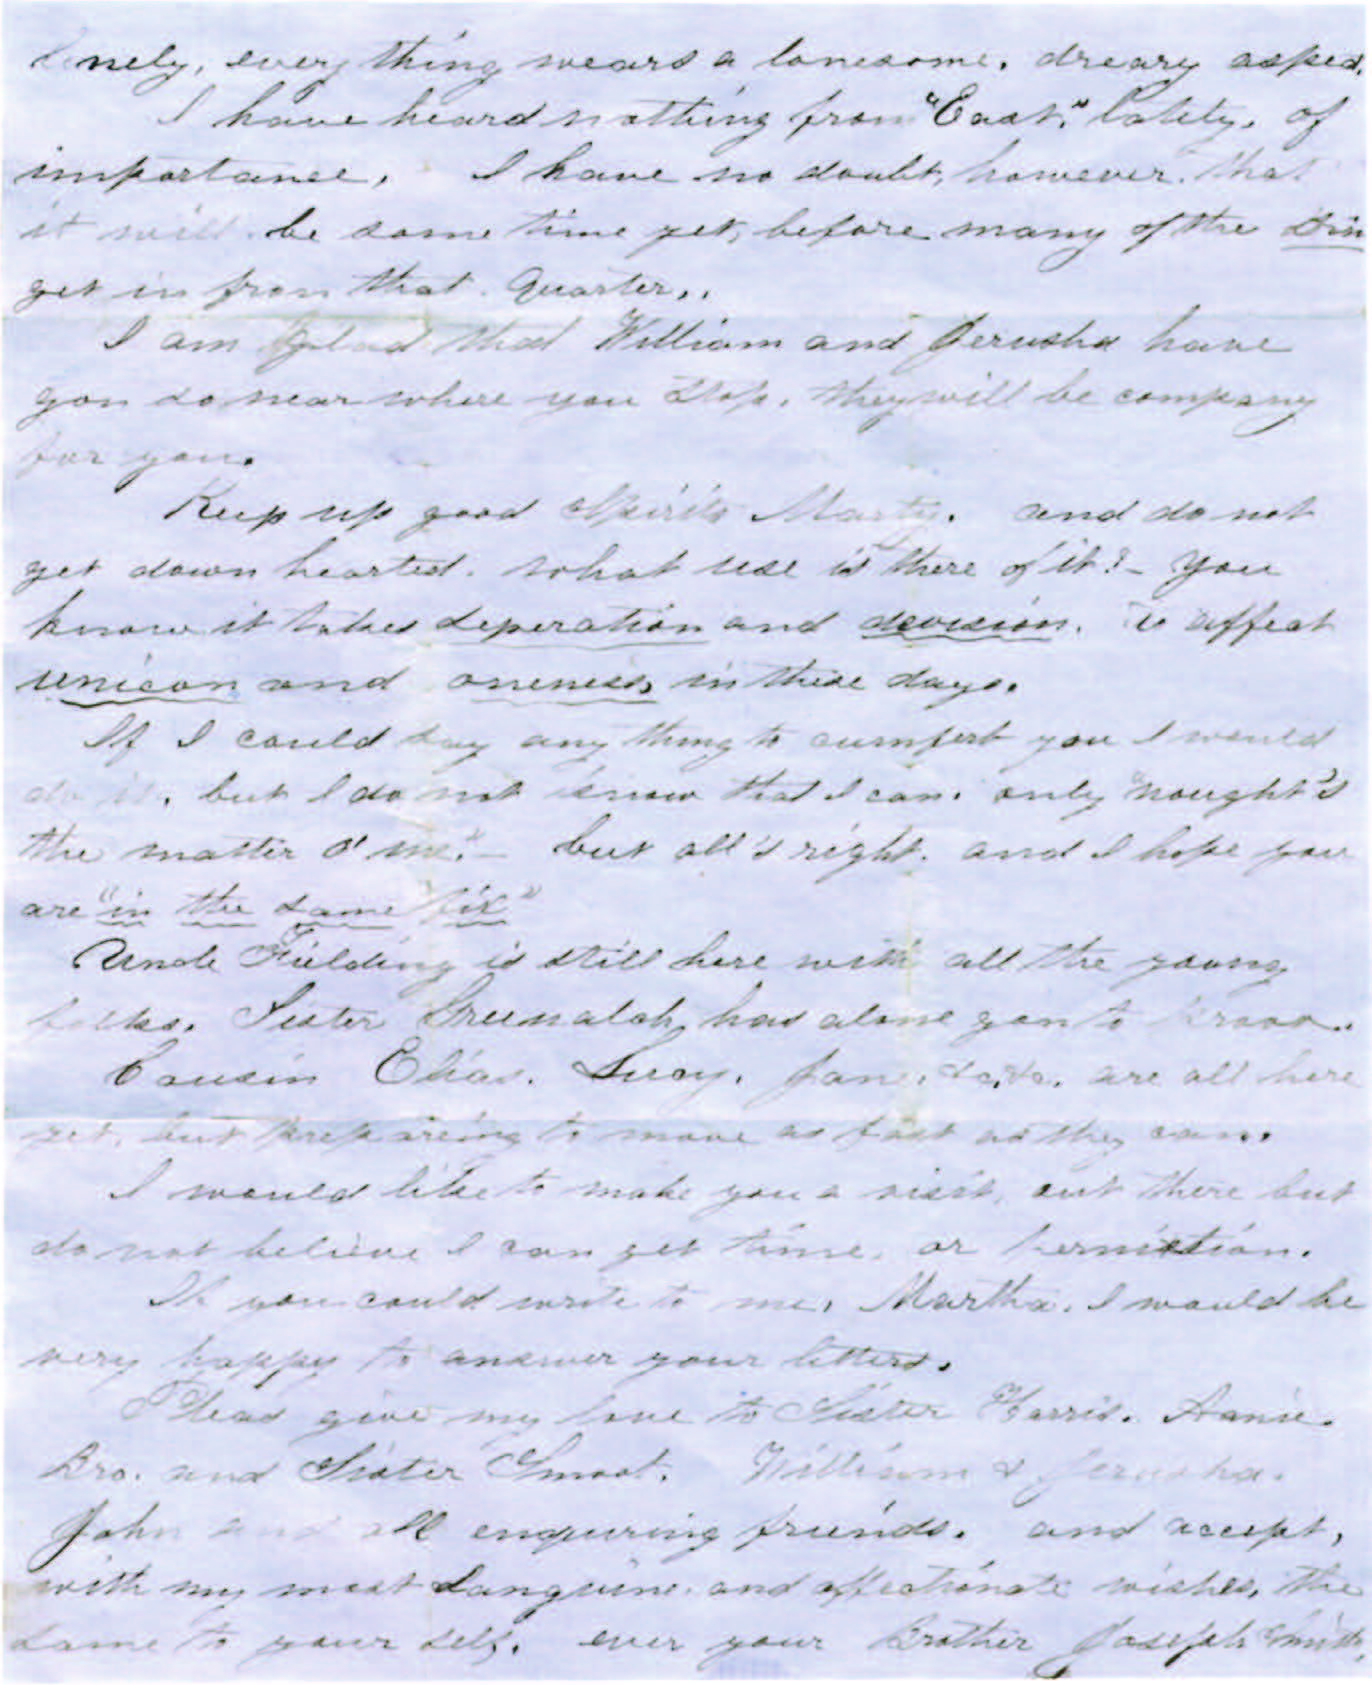 lonely, every thing wears a lonesome, dreary aspect.
I have heard nothing from "East," lately, of
importance, I have no doubt, however, that
it will be some time yet, before many of the
get in from that Quarter,.
I am glad that William and Jerusha have
gon so near where you Stop, they will be company
for you.
Keep up good Spirits Marty. and do not
get down hearted. what use is there of it?- you
know it takes seperation and devision, to affect
unican and oneness, in these days.
If I could say any thing to cumfert you I would
do it, but I do not know that I can. only "nought's
the matter o' me."- but all's right. and I hope you
are "in the same fix"
Uncle Fielding is still here with all the young
folks. Sister Greenalch, has alone gon to Provo.
Cousin Elias. Lucy. Jane, &c,&c. are all here
yet, but prepareing to move as fast as they can.
I would like to make you a visit, out there but
do not believe I can get time, or permistion.
If you could write to me, Martha, I would be
very happy to answer your letters.
Pleas give my love to Sister Harris. Annie.
Bro. and Sister Smoot. William & Jerusha.
John and all enquring friends. and accept,
with my most Sanguine and affectionate wishes, the
same to your self, ever your Brother Joseph Smith,